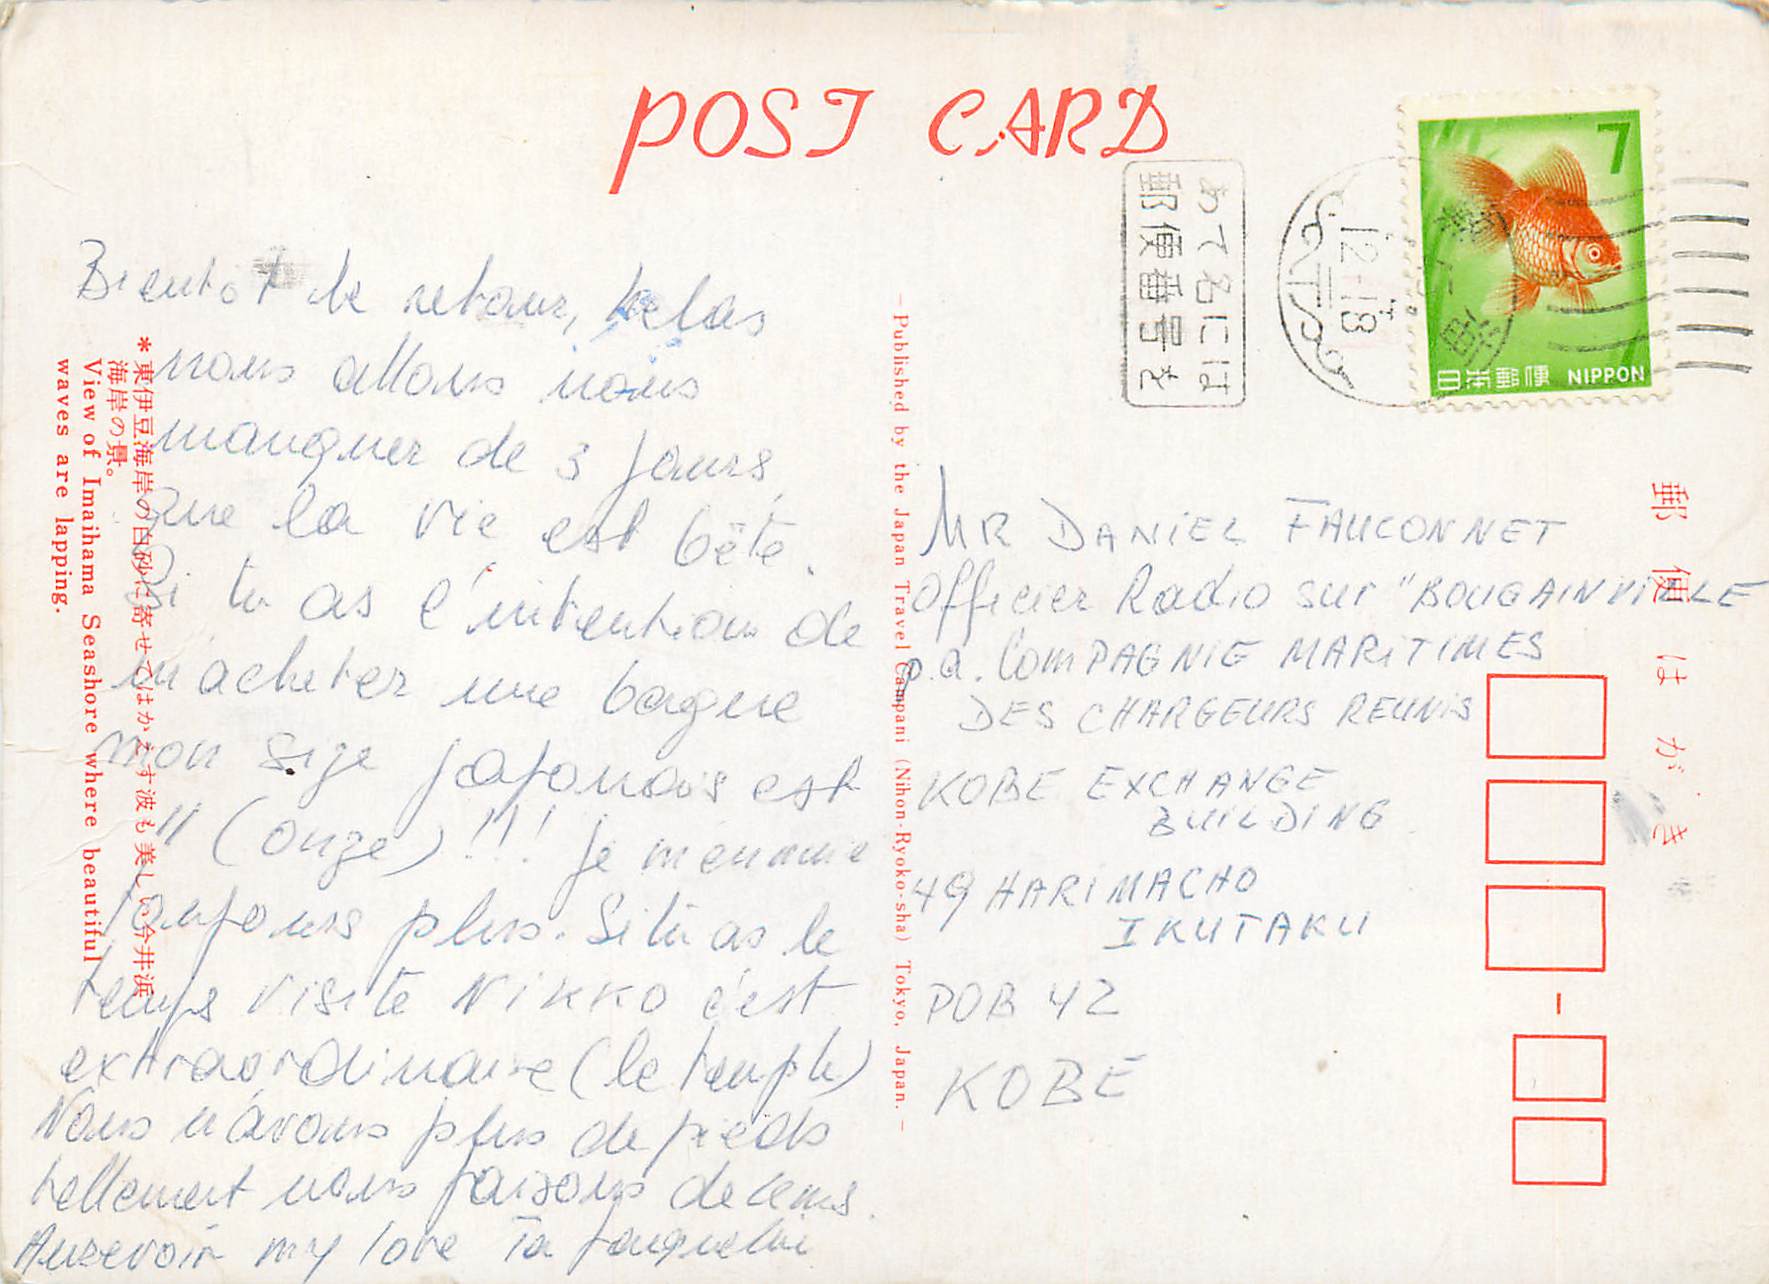 POST CARD
7
日本郵便 NIPPON
あて名には
郵便番号を
12-18
Bientôt le retour, helas
nous allons nous
manquer de 3 jours,
que la vie est bête.
Si tu as l'intention de
m'acheter une bague
mon size japonais est
11 (onze)!!! Je m'ennuie
toujours plus. Si tu as le
temps visite NIKKO c'est
extraordinaire (le temple)
Nous n'avons plus de pieds
tellement nous faisons de kms.
Aurevoir my love Ta Jaqueline
*東伊豆海岸の白砂に寄せてはかえす波も美しい今井浜
海岸の景。
View of Imaihama Seashore where beautiful
waves are lapping.
—Published by the Japan Travel Campani (Nihon-Ryoko-sha) Tokyo, Japan.—
MR DANIEL FAUCONNET
Officier Radio sur "BOUGAINVILLE
p.a. COMPAGNIE MARITIMES
DES CHARGEURS REUNIS
KOBE EXCHANGE
BUILDING
49 HARIMACHO
IKUTAKU
POB 42
KOBE
郵便はがき